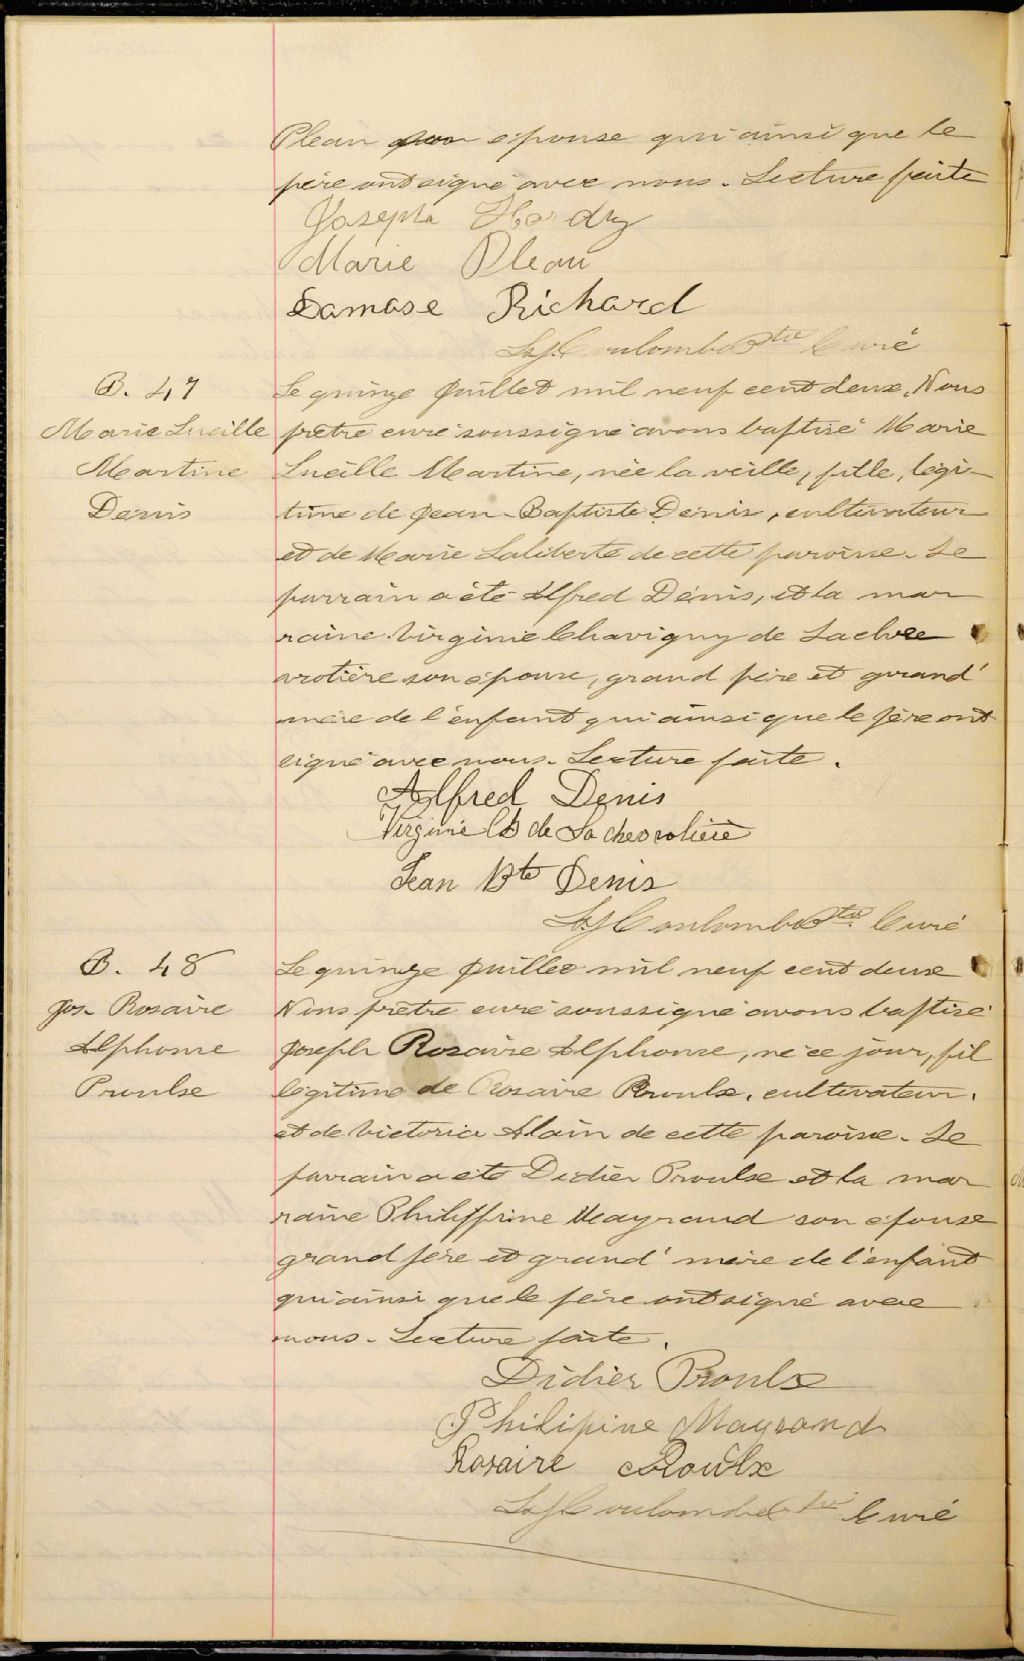 Plean son épouse qui ainsi que le
père ont signé avec nous. Lecture faite
Joseph Hardy
Marie Plean
Damase Richard
Coulombe Ptre Curé
B. 47
Marie Lucille
Martine
Denis
Le quinze Juillet mil neuf cent deux, Nous
prêtre curé soussigné avons baptisé Marie
Lucille Martine, née la veille, fille, légi-
time de Jean-Baptiste Denis, cultivateur
et de Marie Laliberté de cette paroisse. Le
parrain a été Alfred Denis, et la mar
raine Virginie Chavigny de Lachee
vrotière son épouse, grand père et grand'
mère de l'enfant qui ainsi que le père ont
signé avec nous. Lecture faite.
Alfred Denis
Virginie Ch de La chevrolière
Jean Bte Denis
Coulombe Ptre. Curé
B. 48
Jos. Rosaire
Alphonse
Proulx
Le quinze Juillet mil neuf cent deux
Nous prêtre curé soussigné avons baptisé
Joseph Rosaire Alphonse, né ce jour, fil
légitime de Rosaire Proulx, cultivateur,
et de Victoria Alain de cette paroisse. Le
parrain a été Didier Proulx et la mar
raine Philippine Mayrand son épouse
grand père et grand' mère de l'enfant
qui ainsi que le père ont signé avec
nous. Lecture faite.
Didier Proulx
Philipine Mayrand
Rosaire Proulx
Coulombe Ptre Curé